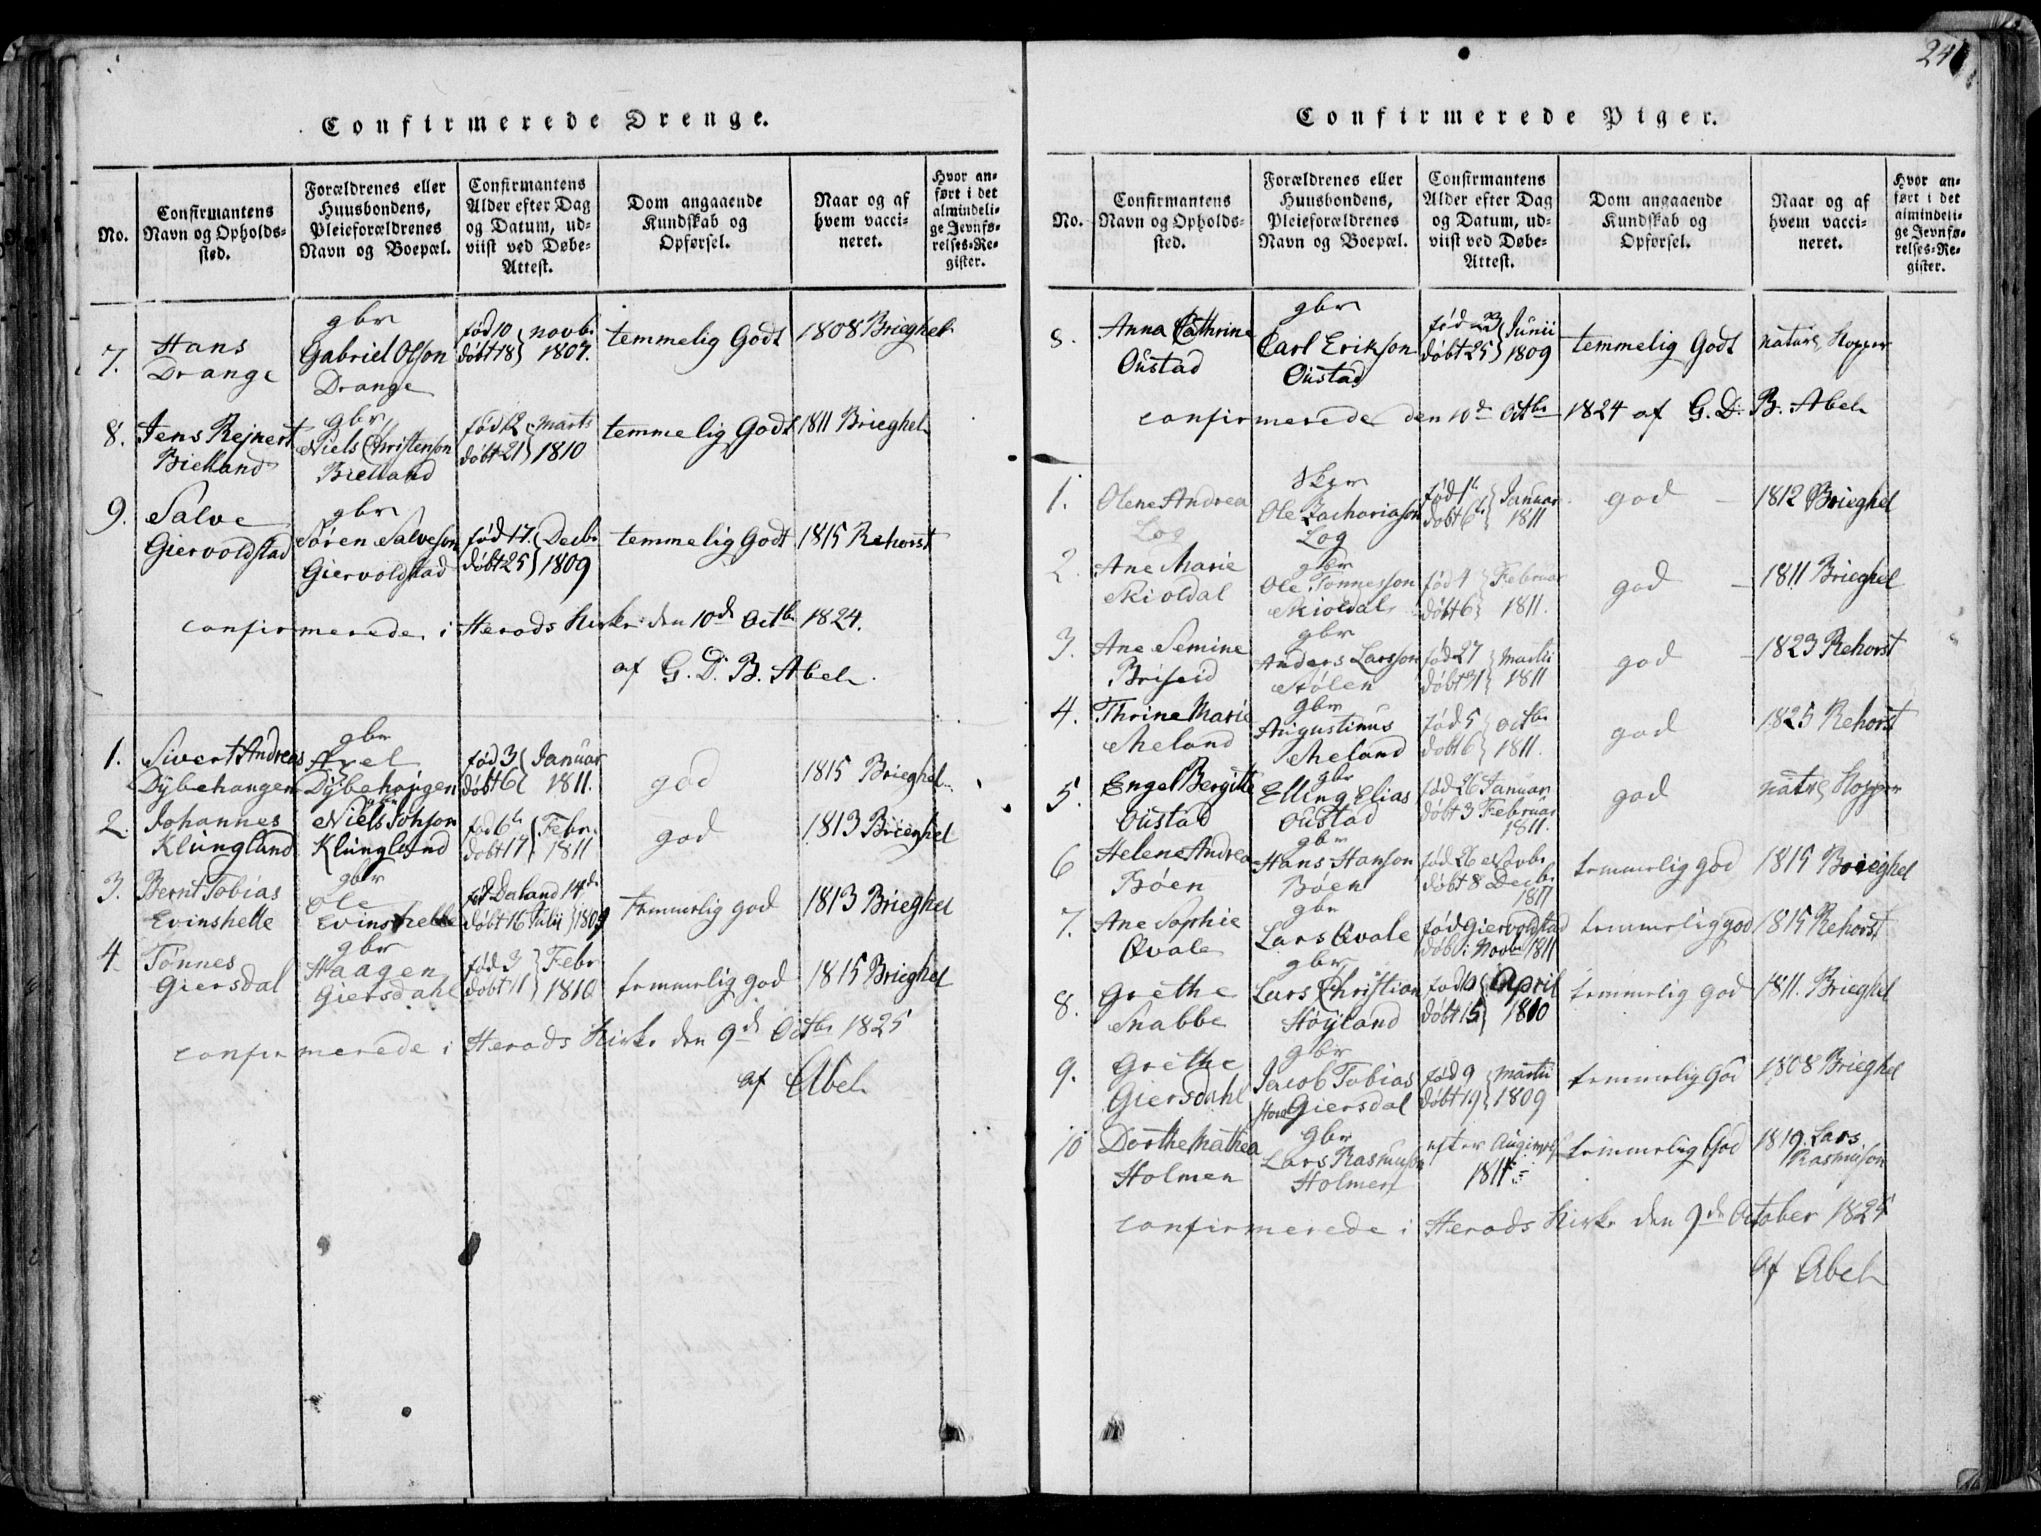 Confirmerede Drenge.
No.
Confirmantens
Navn og Opholds-
sted.
Forældrenes eller
Huusbondens,
Pleieforældrenes
Navn og Boepæl.
Confirmantens
Alder efter Dag
og Datum, ud-
viist ved Døbe-
Attest.
Dom angaaende
Kundskab og
Opførsel.
Naar og af
hvem vacci-
neret.
Hvor an-
ført i det
almindeli-
ge Jevnfø-
relses-Re-
gister.
7.
Hans
Drange
gbr
Gabriel Olson
Drange
fød 10 novbr
døbt 18 1807.
temmelig Godt
1808 Brieghel
8.
Jens Rejnert
Bielland
gbr
Niels Christenson
Bielland
fød 12 Marts
døbt 21 1810
temmelig Godt
1811 Brieghel
9.
Salve
Giervoldstad
gbr
Søren Salveson
Giervoldstad
fød 17. Decbr
døbt 25 1809
temmelig Godt
1815 Rehorst
confirmerede i Herods Kirke den 10de Octbr 1824.
af G. D. B. Abel.
1.
Sivert Andreas
Dybehaugen
gbr
Axel
Dybehaugen
fød 3 Januar
døbt 6 1811.
god
1815 Brieghel
2.
Johannes
Klungland
gbr
Niels Johson
Klungland
fød 6 Febr.
døbt 17 1811
god
1813 Brieghel
3.
Bernt Tobias
Evinshelle
gbr
Ole
Evinshelle
fød Daland 14de
døbt 16 Julii 1809
temmelig god
1813 Brieghel
4
Tønnes
Giersdal
gbr
Haagen
Giersdahl
fød 3 Febr
døbt 11 1810
temmelig god
1815 Brieghel
confirmerede i Herods Kirke den 9de Octbr 1825
af Abel
24
Confirmerede Piger.
No.
Confirmantens
Navn og Opholds-
sted.
Forældrenes eller
Huusbondens,
Pleieforældrenes
Navn og Boepæl.
Confirmantens
Alder efter Dag
og Datum, ud-
viist ved Døbe-
Attest.
Dom angaaende
Kundskab og
Opførsel.
Naar og af
hvem vacci-
neret.
Hvor an-
ført i det
almindeli-
ge Jevnfø-
relses-Re-
gister.
8.
Anna Cathrine
Oustad
gbr
Carl Erikson
Oustad
fød 23 Junii
døbt 25 1809
temmelig Godt
naturl Kopper
confirmerede den 10de Octbr 1824 af G. D. B. Abel
1.
Olene Andrea
Log
Ole Zachariason
Log
fød 1 Januar
døbt 6 1811
god
1812 Brieghel
2.
Ane Marie
Skioldal
gbr
Ole Tønnesson
Skioldal
fød 4 Februar
døbt 6 1811.
god
1811 Brieghel
3.
Ane Semine
Briseid
gbr
Anders Larsson
Stølen
fød 27 Martii
døbt 31 1811
god
1823 Rehorst
4.
Thrine Marie
Meland
gbr
Augustinus
Meland
fød 5 Octbr
døbt 6 1811.
god
1825 Rehorst
5.
Engel Bergitte
Oustad
gbr
Elling Elias
Oustad
fød 26 Januar
døbt 3 Februar
1811.
god
natrl Kopper
6
Helene Andrea
Bøen
gbr
Hans Hanson
Bøen
fød 26 Novbr
døbt 8 Decbr
1811
temmelig god
1815 Brieghel
7.
Ane Sophie
Qvale
gbr
Lars Qvale
fød Giervoldstad
døbt i Novr 1811
temmelig god
1815 Rehorst
8.
Grethe
Snabbe
gbr
Lars Christian
Høyland
fød 10 April
døbt 15 1810
temmelig god
1811. Brieghel
9.
Grethe
Giersdahl
gbr
Jacob Tobias
Giersdal
fød 9 Martii
døbt 19 1809
temmelig God
1808 Brieghel
10
Dorthe Mathea
Holmen
gbr
Lars Rasmuson
Holmen
efter
1811
temmelig God
1819. Lars
Rasmuson
confirmerede i Herods Kirke den 9de October 1825
af Abel